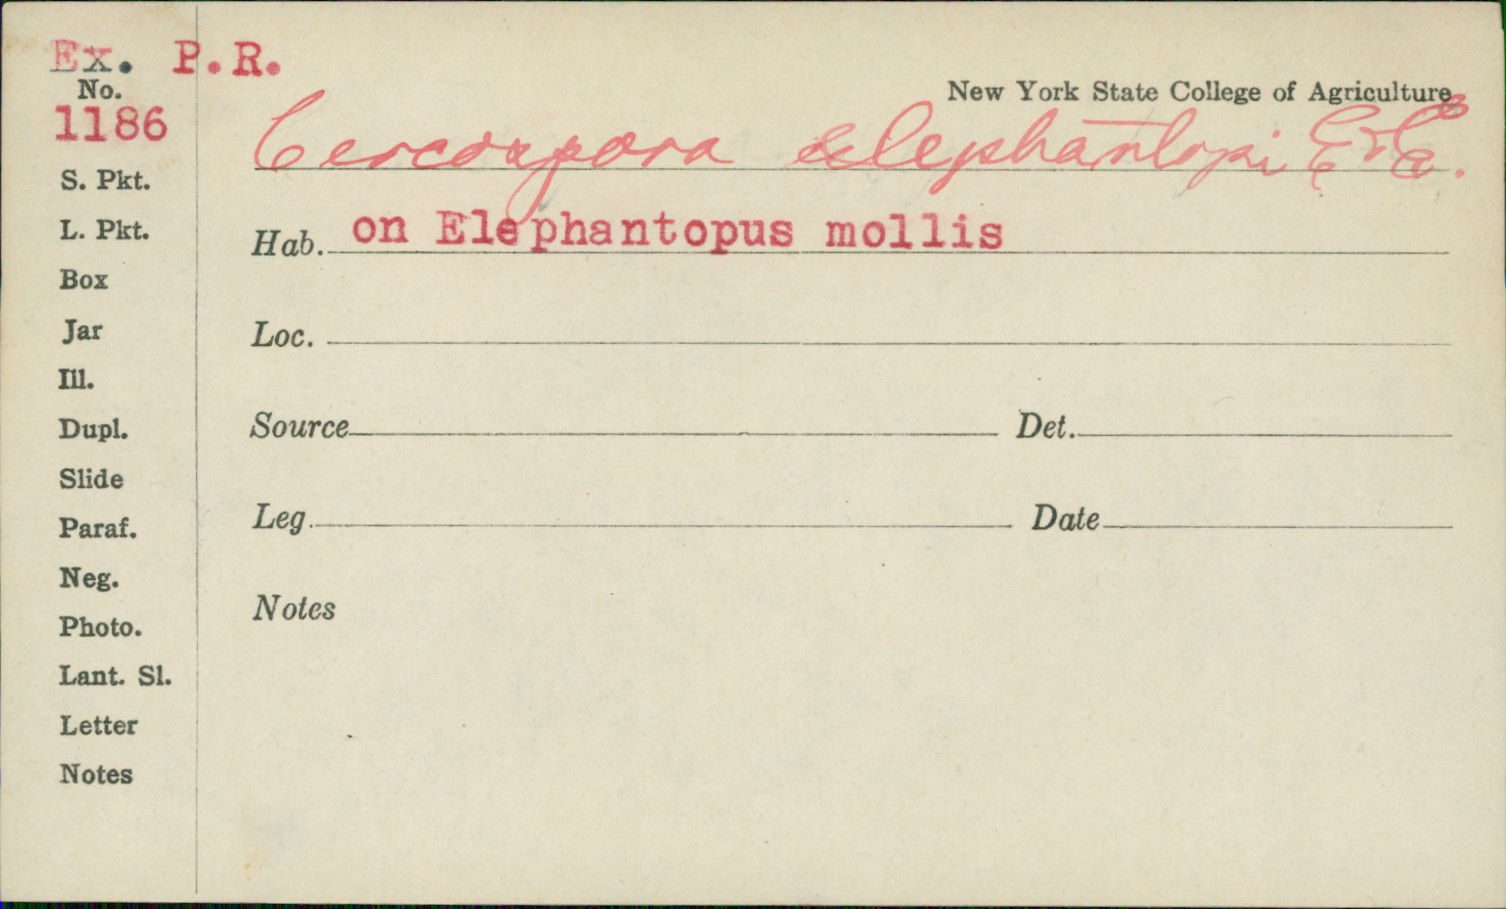 Ex. P.R.
No.
1186
New York State College of Agriculture
Cercospora elephantopi E & E.
Hab. on Elephantopus mollis
Loc.
Source Det.
Leg. Date
Notes
S. Pkt.
L. Pkt.
Box
Jar
Ill.
Dupl.
Slide
Paraf.
Neg.
Photo.
Lant. Sl.
Letter
Notes